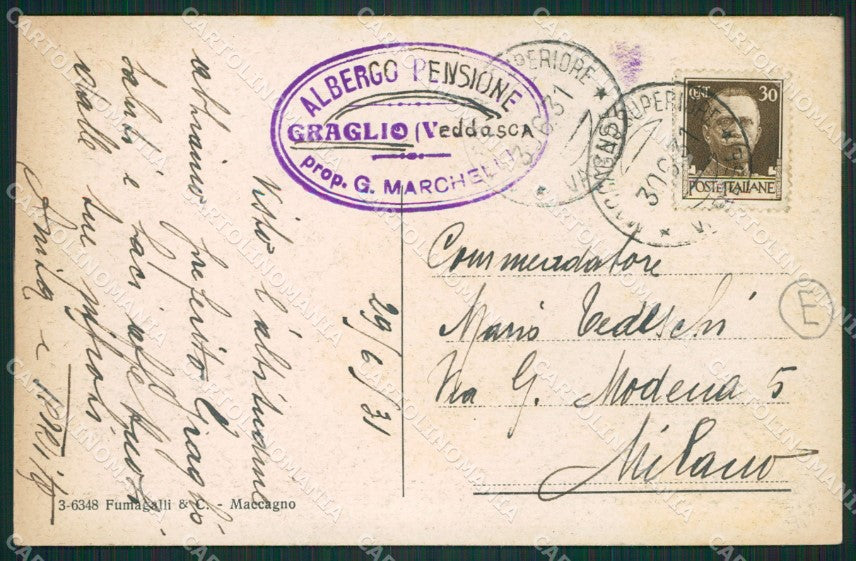 ALBERGO PENSIONE
GRAGLIO (Veddasca
prop. G. MARCHELLI
SUPERIORE
30 6 31
MACCAGNO SUPERIORE
30 6 31
CENT. 30
POSTE ITALIANE
Visto l'altitudine
abbiamo preferito Graglio
Saluti e baci alle
Anita e
29/6/31
Commendatore
Mario Tedeschi
Via G. Modena 5
Milano
E
3-6348 Fumagalli & C. - Maccagno
CARTOLINOMANIA